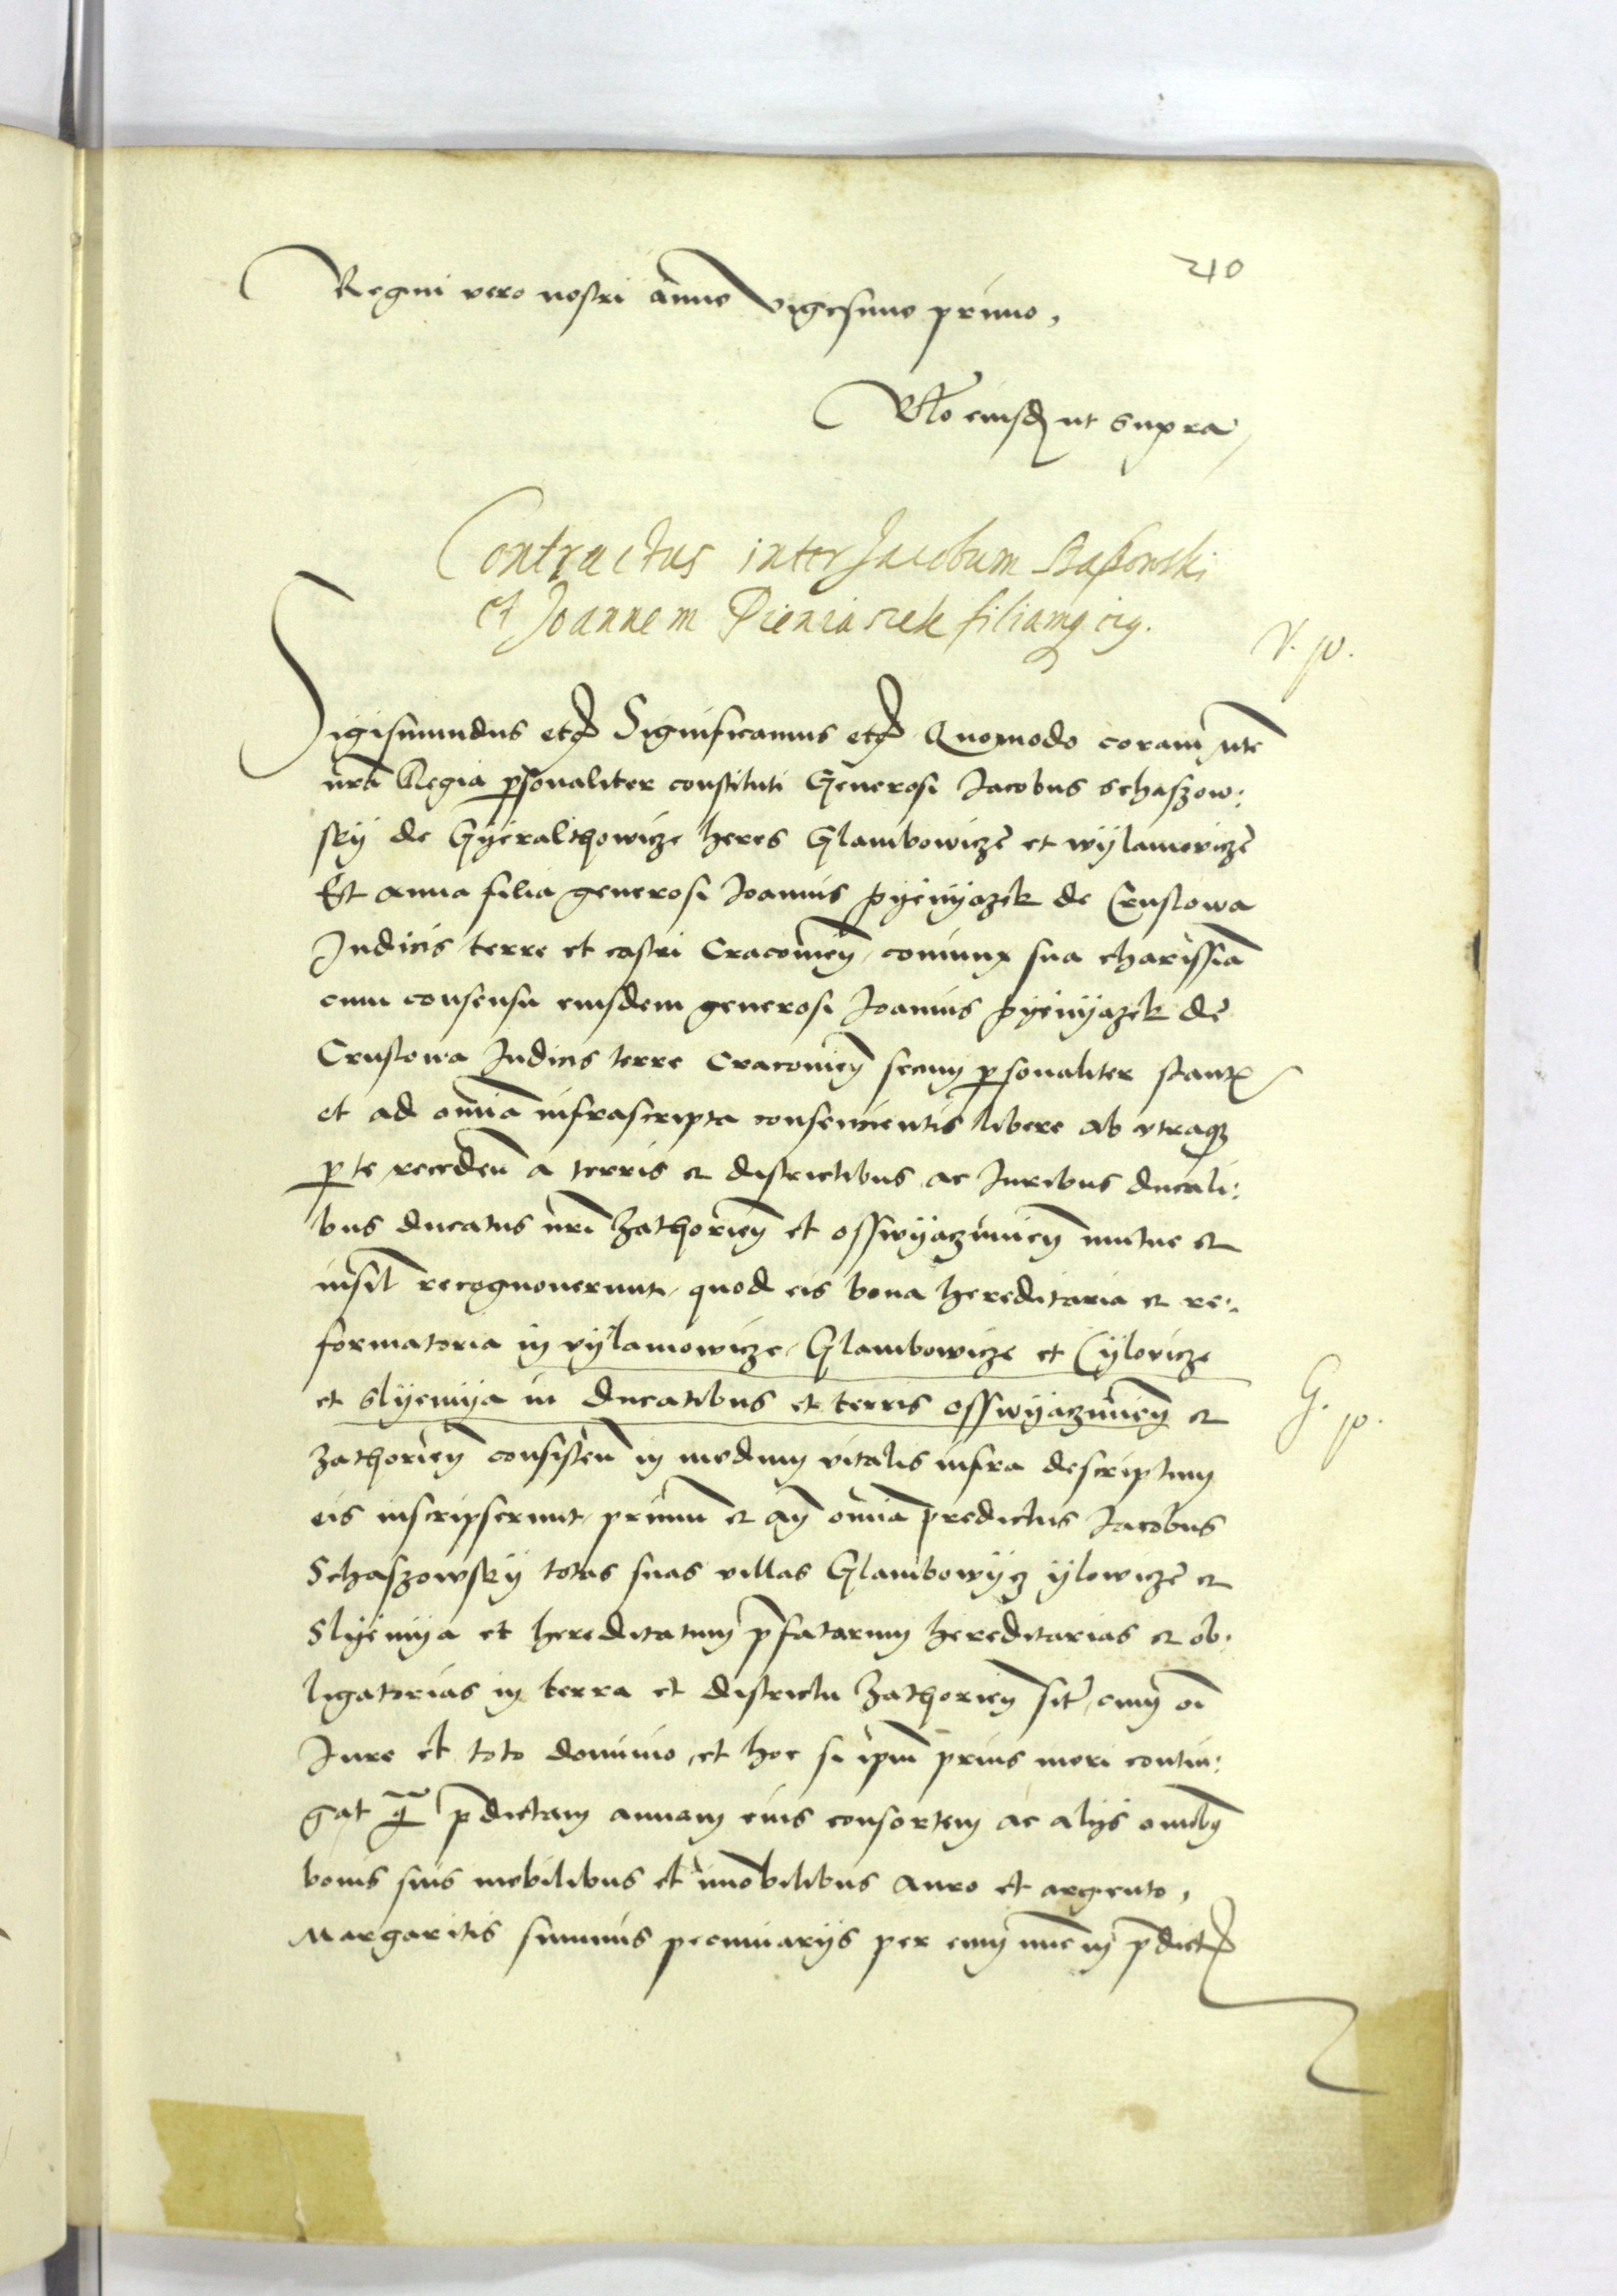 210
Regni vero nostri anno vigesimo primo,
Rlo eiusd ut supra
Contractus inter Jacobum Staszowski
et Joannem Pieniazek filiamq eig.
V. p.
Sigismundus etc Significamus etc Quomodo coram mte
nra Regia psonaliter constituti Generosi Jacobus Schaszow:
sky de Gyeralthowicze heres Glambowicze et wylamovicze
Et Anna filia generosi Joannis pyenyazek de Crustowa
Judicis terre et castri Cracovien, coniunx sua charissia
cum consensu eiusdem generosi Joannis pyenyazek de
Crustowa Judicis terre Cracovien secum psonaliter stantis
et ad omnia infrascripta consencientis libere ab utraq
pte receden a terris et districtibus ac Juribus ducali:
bus ducatus nri Zathorien et osswyaczimien mutue et
insil recognoverunt, quod eis bona hereditaria et re:
formatoria in vylamowicze, Glambowicze et Cylovicze
et Slyemya in Ducatibus et terris osswyaczimien et
G. p.
Zathorien consisten in modum vitalis infra descriptum
eis inscripserunt, primum et an omnia predictus Jacobus
Schaszowsky totas suas villas Glambowycz ylowicze et
Slyemya et hereditatum pfatarum hereditarias et ob:
ligatorias in terra et districtu Zathorien sit, cum oi
Jure et toto dominio, et hoc si ipm prius mori contin:
gat q pdictam annam eius consortem ac alijs omnibus
bonis suis mobilibus et imobilibus auro et argento,
Margaritis summis pecuniarijs per eum nuc in pdict